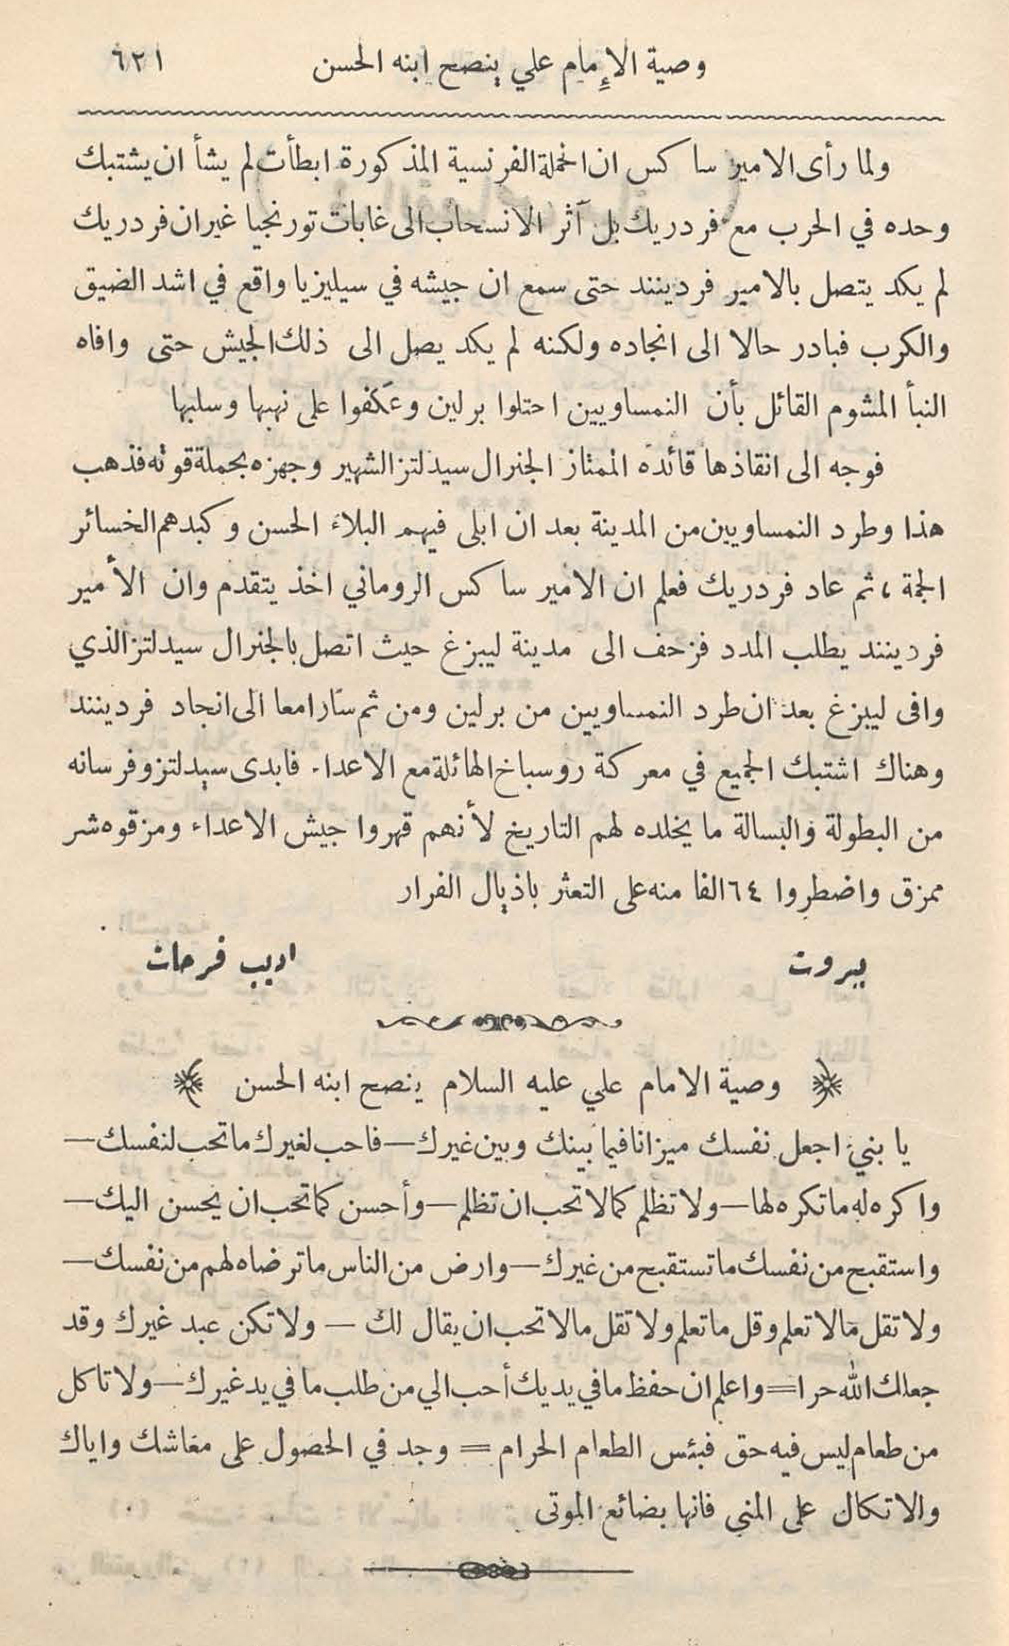 وصية الإمام علي ينصح ابنه الحسن ٦٢١
ولما رأى الامير ساكس ان الحملة الفرنسية المذكورة ابطأت لم يشأ ان يشتبك
وحده في الحرب مع فردريك بل آثر الانسحاب الى غابات تورنجيا غير ان فردريك
لم يكد يتصل بالامير فردينند حتى سمع ان جيشه في سيليزيا واقع في اشد الضيق
والكرب فبادر حالا الى انجاده ولكنه لم يكد يصل الى ذلك الجيش حتى وافاه
النبأ المشوم القائل بأن النمساويين احتلوا برلين وعكفوا على نهبها وسلبها
فوجه الى انقاذها قائده الممتاز الجنرال سيدلتز الشهير وجهزه بجملة قوته فذهب
هذا وطرد النمساويين من المدينة بعد ان ابلى فيهم البلاء الحسن وكبدهم الخسائر
الجمة ، ثم عاد فردريك فعلم ان الامير ساكس الروماني اخذ يتقدم وان الأمير
فردينند يطلب المدد فزحف الى مدينة ليبزغ حيث اتصل بالجنرال سيدلتز الذي
وافى ليبزغ بعد ان طرد النمساويين من برلين ومن ثم سارا معا الى انجاد فردينند
وهناك اشتبك الجميع في معركة روسباخ الهائلة مع الاعداء . فابدى سيدلتز وفرسانه
من البطولة والبسالة ما يخلده لهم التاريخ لأنهم قهروا جيش الاعداء ومزقوه شر
ممزق واضطروا ٦٤ الفا منه على التعثر باذيال الفرار
بيروت اديب فرحات
وصية الامام علي عليه السلام ينصح ابنه الحسن
يا بني اجعل نفسك ميزانا فيما بينك وبين غيرك — فاحب لغيرك ما تحب لنفسك —
واكره له ما تكره لها — ولا تظلم كما لا تحب ان تظلم — وأحسن كما تحب ان يحسن اليك —
واستقبح من نفسك ما تستقبح من غيرك — وارض من الناس ما ترضاه لهم من نفسك —
ولا تقل ما لا تعلم وقل ما تعلم ولا تقل ما لا تحب ان يقال لك — ولا تكن عبد غيرك وقد
جعلك الله حرا = واعلم ان حفظ ما في يديك أحب الي من طلب ما في يد غيرك — ولا تاكل
من طعام ليس فيه حق فبئس الطعام الحرام = وجد في الحصول على معاشك واياك
والاتكال على المنى فانها بضائع الموتى